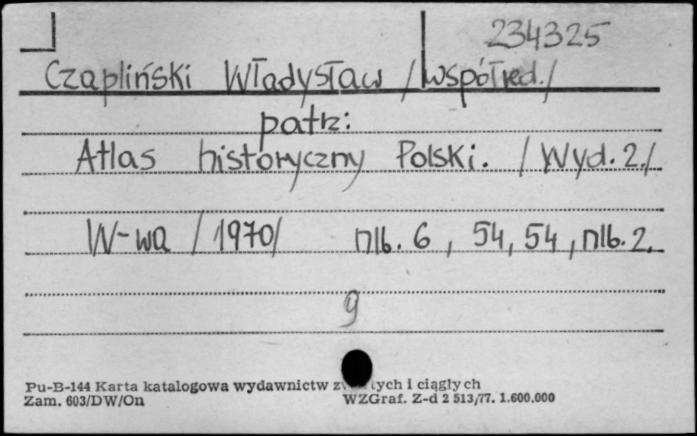 234325
Czapliński Władysław /współred./
patrz:
Atlas historyczny Polski. /Wyd. 2./
W-wa /1970/ nlb. 6, 54, 54, nlb. 2.
9
Pu-B-144 Karta katalogowa wydawnictw i ciągłych
Zam. 603/DW/On WZGraf. Z-d 2 513/77. 1.600.000